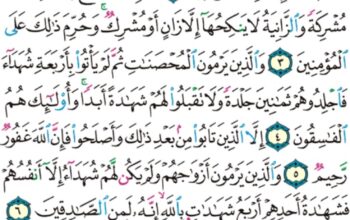 مُشْرِكَةً وَٱلزَّانِيَةُ لَا يَنكِحُهَآ إِلَّا زَانٍ أَوْ مُشْرِكٌ ۚ وَحُرِّمَ ذَٰلِكَ عَلَى
ٱلْمُؤْمِنِينَ ٣ وَٱلَّذِينَ يَرْمُونَ ٱلْمُحْصَنَٰتِ ثُمَّ لَمْ يَأْتُوا۟ بِأَرْبَعَةِ شُهَدَآءَ
فَٱجْلِدُوهُمْ ثَمَٰنِينَ جَلْدَةً وَلَا تَقْبَلُوا۟ لَهُمْ شَهَٰدَةً أَبَدًا ۚ وَأُو۟لَٰٓئِكَ هُمُ
ٱلْفَٰسِقُونَ ٤ إِلَّا ٱلَّذِينَ تَابُوا۟ مِنۢ بَعْدِ ذَٰلِكَ وَأَصْلَحُوا۟ فَإِنَّ ٱللَّهَ غَفُورٌ
رَّحِيمٌ ٥ وَٱلَّذِينَ يَرْمُونَ أَزْوَٰجَهُمْ وَلَمْ يَكُن لَّهُمْ شُهَدَآءُ إِلَّآ أَنفُسُهُمْ
فَشَهَٰدَةُ أَحَدِهِمْ أَرْبَعُ شَهَٰدَٰتٍۭ بِٱللَّهِ ۙ إِنَّهُۥ لَمِنَ ٱلصَّٰدِقِينَ ٦